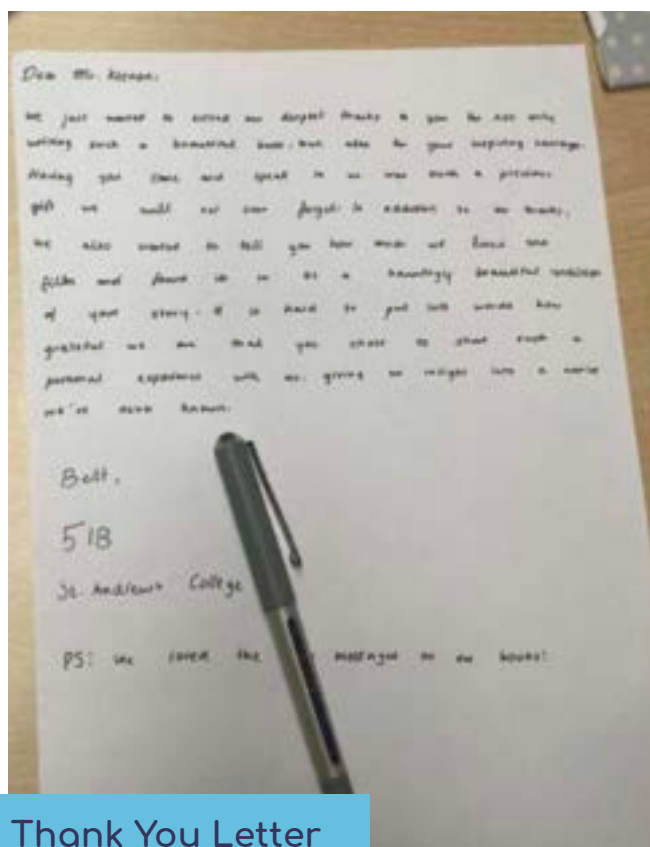 Dear Mr. Keenan,
We just wanted to extend our deepest thanks to you for not only
writing such a beautiful book, but also for your inspiring courage.
Having you come and speak to us was such a precious
gift we will not ever forget. In addition to our thanks,
we also wanted to tell you how much we loved the
film and found it to be a hauntingly beautiful
of your story. It is hard to put into words how
grateful we are that you chose to share such a
personal experience with us, giving an insight into a world
we've never known.
Best,
5
St. Andrew's College
PS: We loved the messages in our books!
Thank You Letter